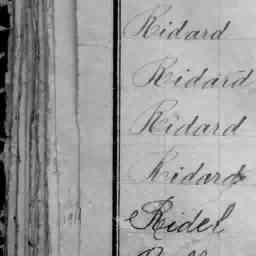 Ridard
Ridard
Ridard
Ridard
Ridel